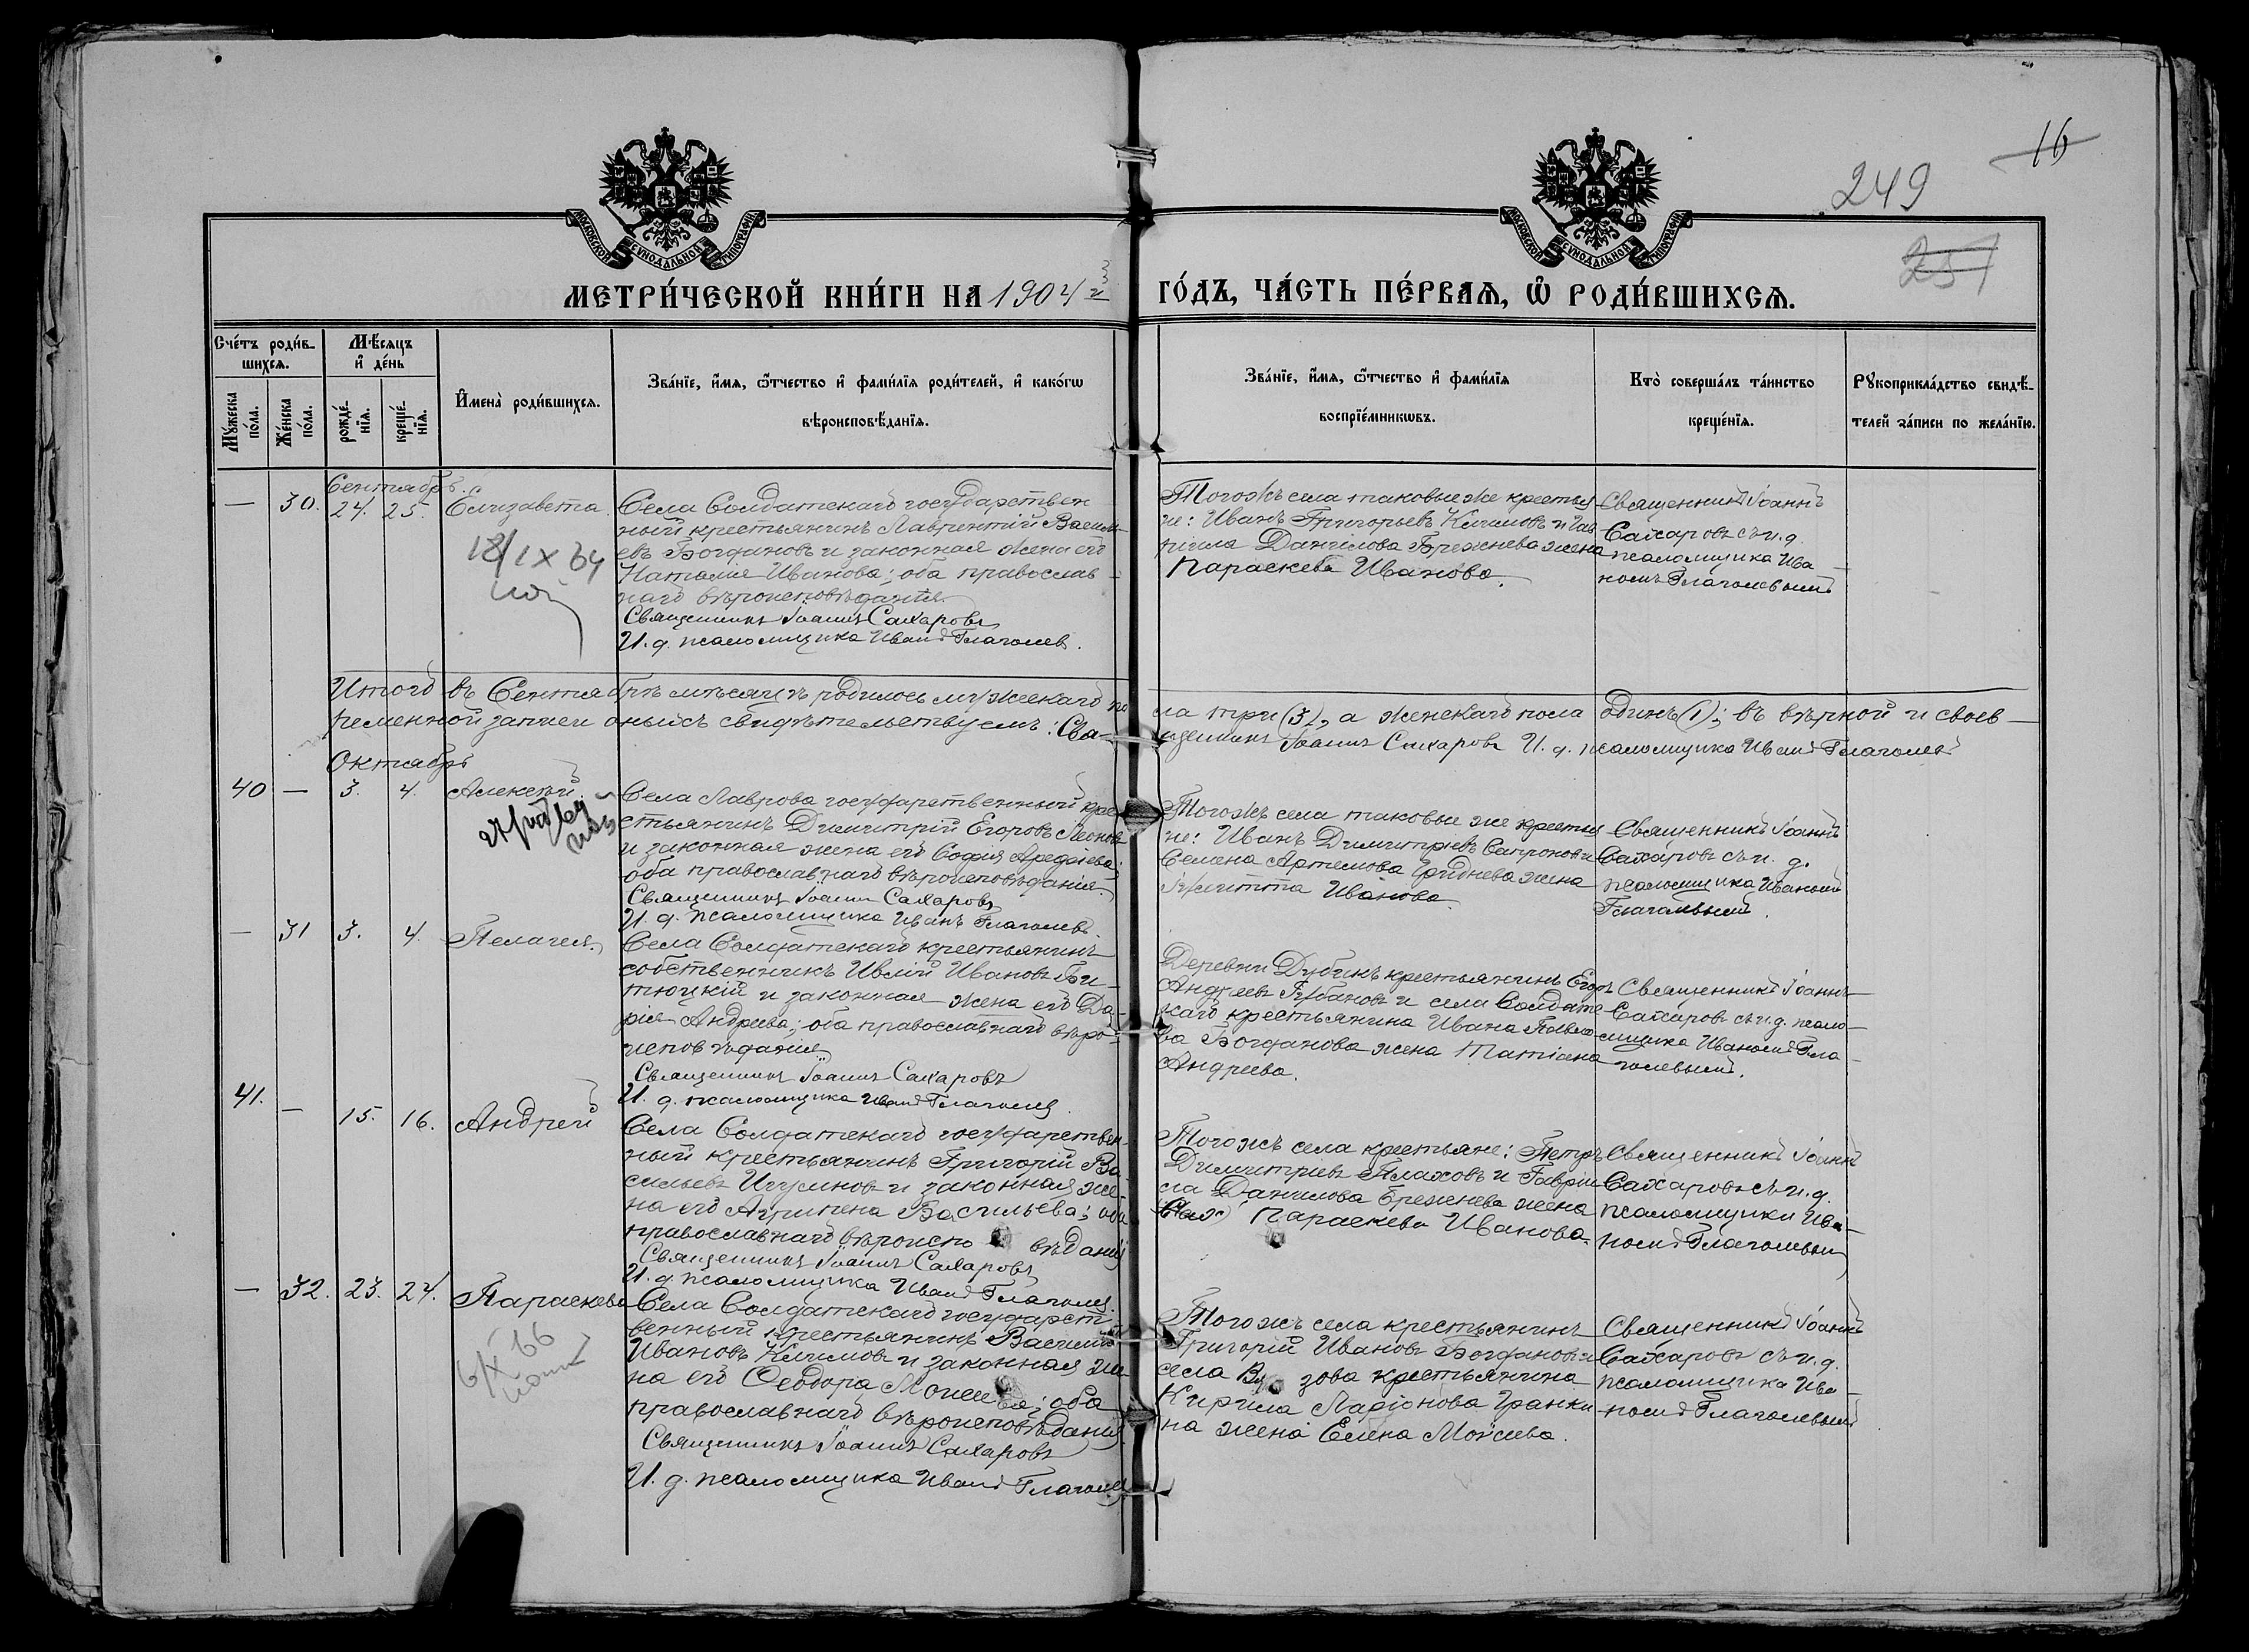 16
249
251
МОСКОВСКОЙ СУНОДАЛЬНОЙ ТИПОГРАФІИ
МОСКОВСКОЙ СУНОДАЛЬНОЙ ТИПОГРАФІИ
МЕТРИ́ЧЕСКОЙ КНИ́ГИ НА 1904 й
ГО́ДЪ, ЧА́СТЬ ПЕ́РВАѦ, Ѡ҆ РОДИ́ВШИХСѦ.
Сче́тъ роди́в-
шихсѧ.
Мꙋ́жеска по́ла.
Же́нска по́ла.
Мѣ́сѧцъ
и҆ де́нь
рожде́-
нїѧ.
креще́-
нїѧ.
И҆мена̀ роди́вшихсѧ.
Зва́нїе, и҆́мѧ, ѻ҆́тчество и҆ фами́лїѧ роди́телей, и҆ како́гѡ
вѣроисповѣ́данїѧ.
Зва́нїе, и҆́мѧ, ѻ҆́тчество и҆ фами́лїѧ
воспрїе́мникѡвъ.
Кто̀ соверша́лъ та́инство
креще́нїѧ.
Рꙋкоприкла́дство свидѣ́-
телей за́писи по жела́нїю.
Сентябрь.
— 30. 24. 25. Елизавета.
18/IX 64
Села Солдатскаго государствен
ный крестьянинъ Лаврентій Василь-
евъ Богдановъ и законная жена его
Наталія Иванова; оба православ-
наго вѣроисповѣданія.
Священникъ Іоаннъ Сахаровъ
И. д. псаломщика Иванъ Глаголевъ.
Тогожъ села таковые же крестья
не: Иванъ Григорьевъ Климовъ и Гав
ріила Данилова Брежнева жена
Параскева Иванова.
Священникъ Іоаннъ
Сахаровъ съ и. д.
псаломщика Ива-
номъ Глаголевымъ
Итого въ Сентябрѣ мѣсяцѣ родилось мужескаго по
ла три (3), а женскаго пола одинъ (1); въ вѣрной и своев-
ременной записи оныхъ свидѣтельствуемъ: Свя-
щенникъ Іоаннъ Сахаровъ И. д. псаломщика Иванъ Глаголевъ
Октябрь
40 — 3. 4. Алексѣй.
Села Лаврова государственный кре
стьянинъ Димитрій Егоровъ Леоновъ
и законная жена его Софія Арефіева;
оба православнаго вѣроисповѣданія.
Священникъ Іоаннъ Сахаровъ
И. д. псаломщика Иванъ Глаголевъ.
Тогожъ села таковые же крестья
не: Иванъ Димитріевъ Сапроновъ и
Семена Артемова Гриднева жена
Іулитта Иванова.
Священникъ Іоаннъ
Сахаровъ съ и. д.
псаломщика Иваномъ
Глаголевымъ.
— 31 3. 4. Пелагея.
Села Солдатскаго крестьянинъ
собственникъ Ивлій Ивановъ Би-
тюцкій и законная жена его Да-
рія Андреева; оба православнаго вѣро-
исповѣданія
Священникъ Іоаннъ Сахаровъ
И. д. псаломщика Иванъ Глаголевъ.
Деревни Дубикъ крестьянинъ Егоръ
Андреевъ Губановъ и села Солдатс
каго крестьянина Ивана Павло-
ва Богданова жена Татіана
Андреева.
Священникъ Іоаннъ
Сахаровъ съ и. д. псало-
мщика Иваномъ Гла-
голевымъ.
41. — 15. 16. Андрей
Села Солдатскаго государствен-
ный крестьянинъ Григорій Ва-
сильевъ Игумновъ и законная же-
на его Агрипена Васильева; оба
православнаго вѣроиспо вѣданія
Священникъ Іоаннъ Сахаровъ
И. д. псаломщика Иванъ Глаголевъ.
Тогожъ села крестьяне: Петръ
Димитріевъ Плаховъ и Гавріи
ла Данилова Брежнева жена
Параскева Иванова.
Священникъ Іоаннъ
Сахаровъ съ и. д.
псаломщика Ива-
номъ Глаголевымъ
— 32. 23. 24. Параскева
6/X 66
Села Солдатскаго государст
венный крестьянинъ Василій
Ивановъ Климовъ и законная же-
на его Ѳеодора Моисеева; оба
православнаго вѣроисповѣданія.
Священникъ Іоаннъ Сахаровъ
И. д. псаломщика Иванъ Глаголевъ
Тогожъ села крестьянинъ
Григорій Ивановъ Богдановъ и
села Вя зова крестьянина
Кирила Ларіонова Гранки-
на жена Елена Моисеева.
Священникъ Іоаннъ
Сахаровъ съ и. д.
псаломщика Ива-
номъ Глаголевымъ